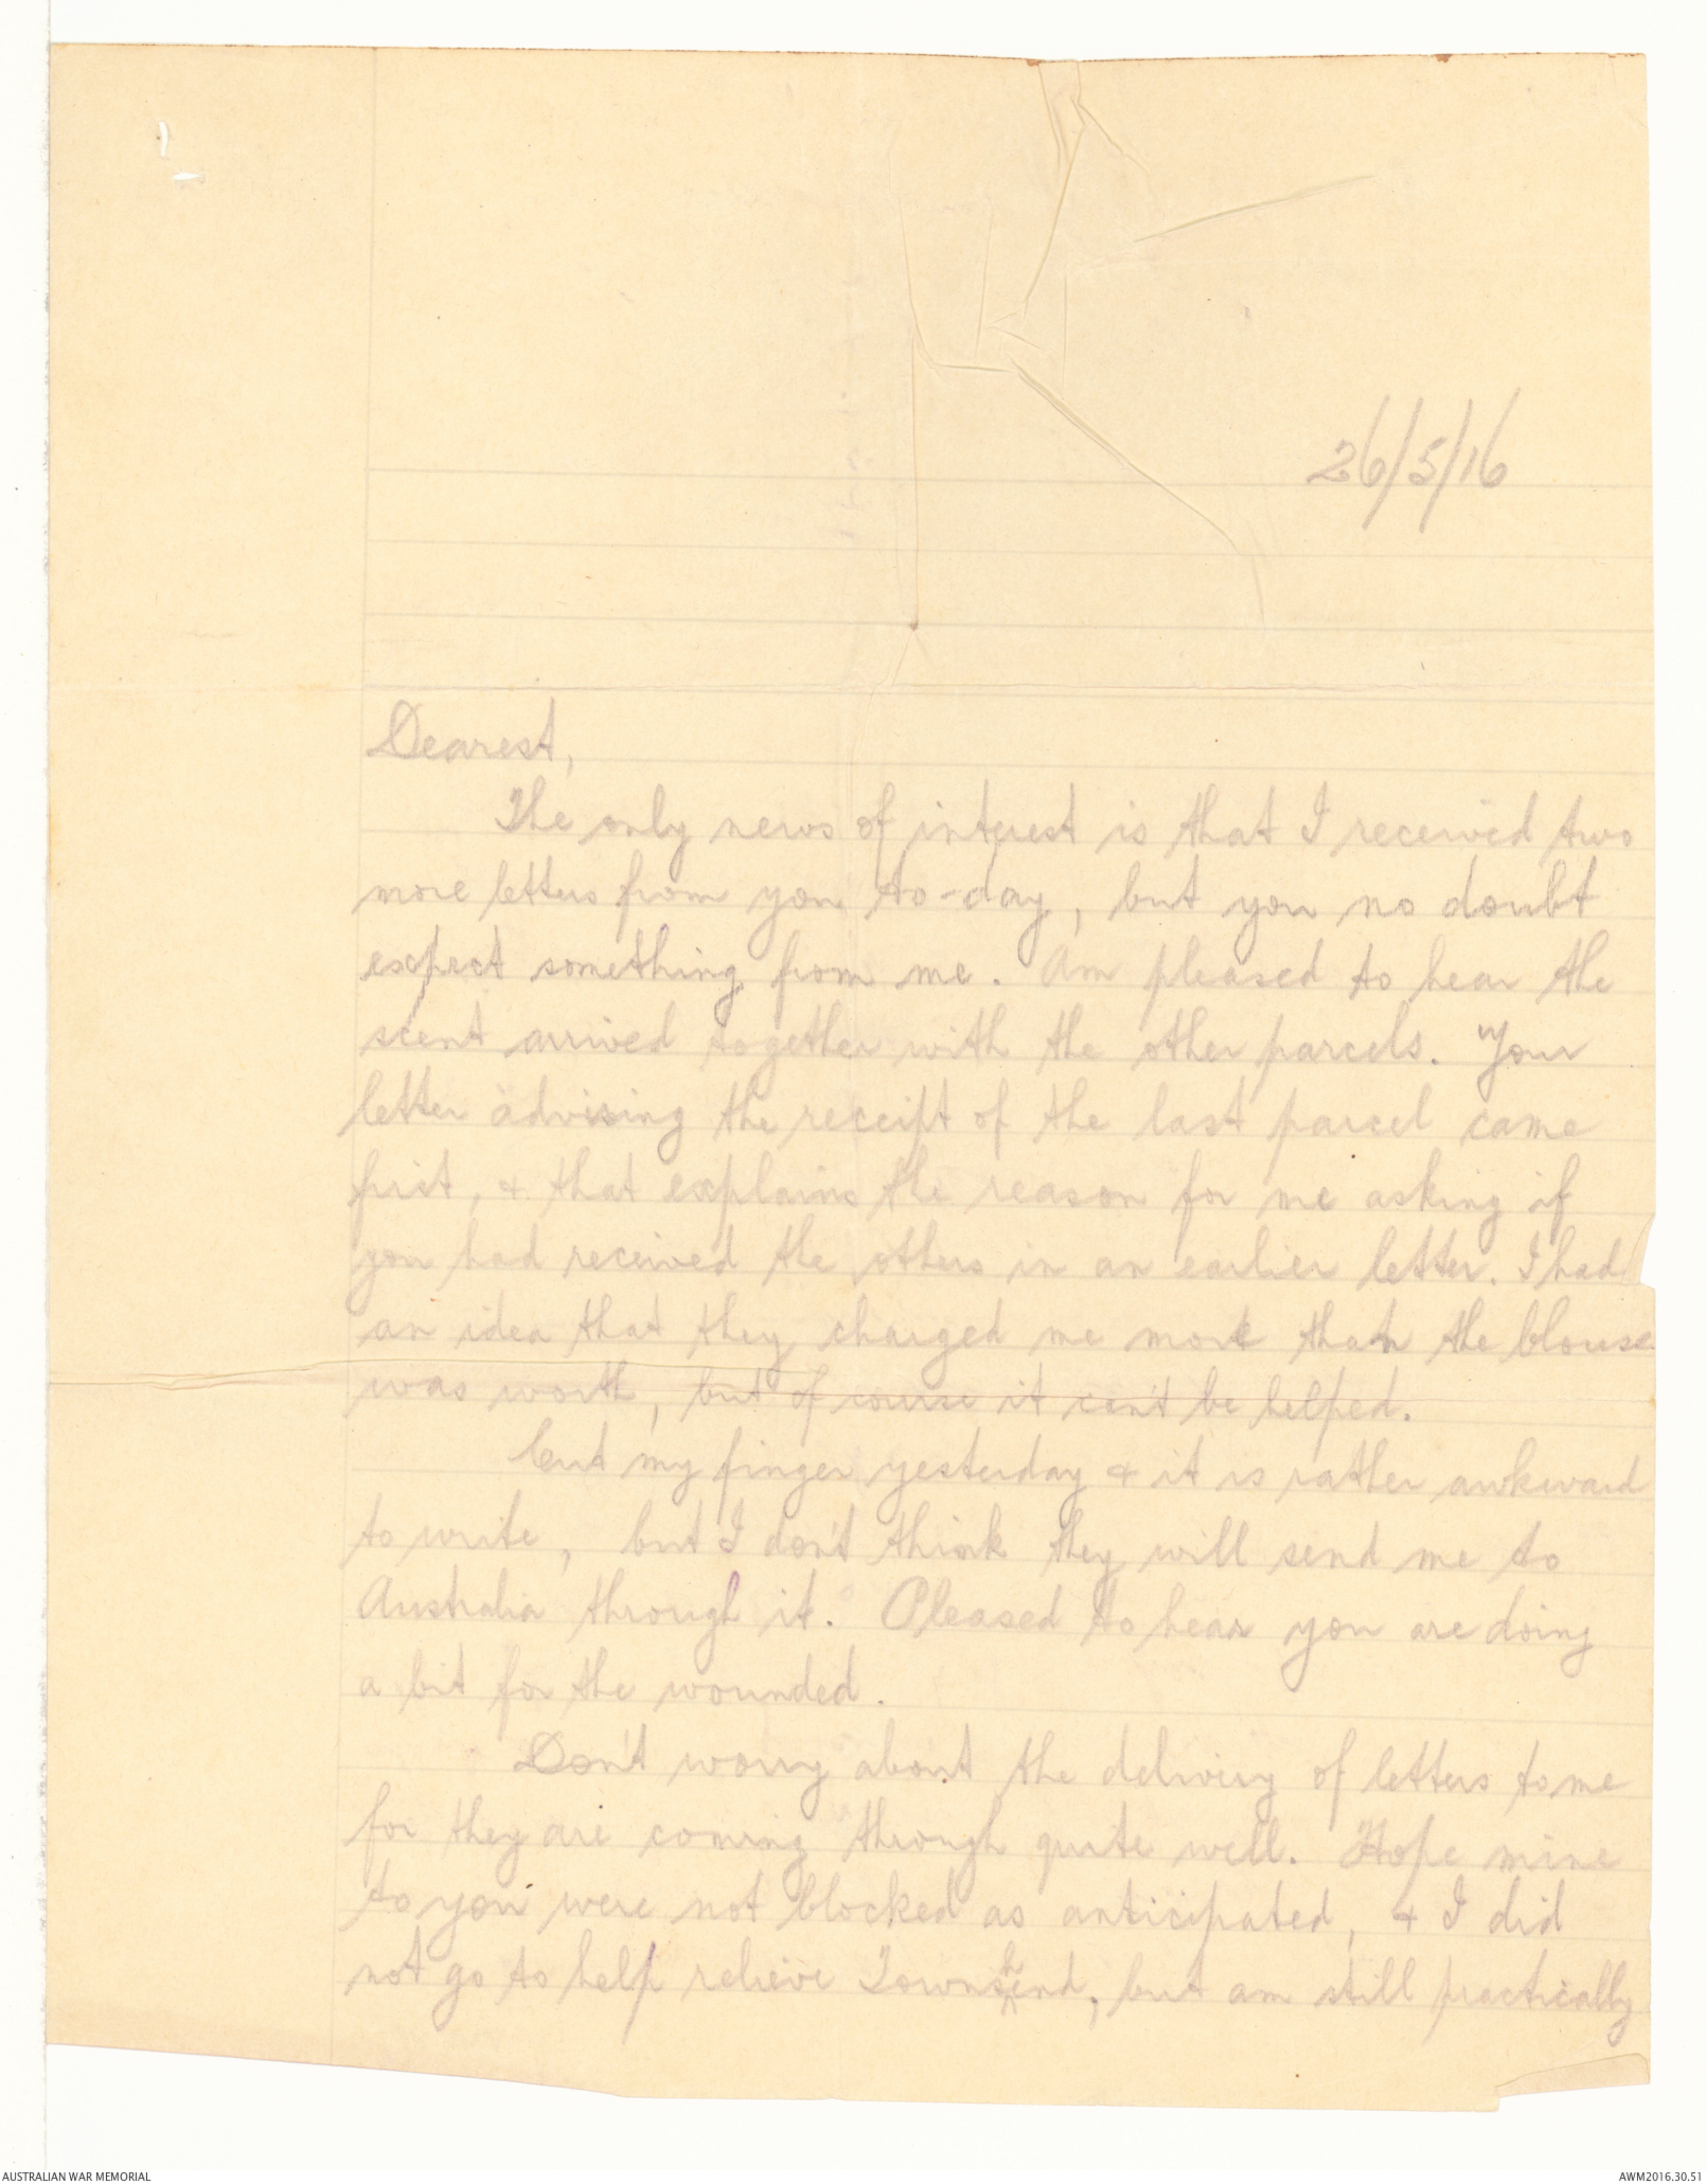 26/5/16
Dearest,
The only news of interest is that I received two
more letters from you to-day, but you no doubt
expect something from me. Am pleased to hear the
scent arrived together with the other parcels. Your
letter advising the receipt of the last parcel came
first, & that explains the reason for me asking if
you had received the others in an earlier letter. I had
an idea that they charged me more than the blouse
was worth, but of course it can't be helped.
Cut my finger yesterday & it is rather awkward
to write, but I don't think they will send me to
Australia through it. Pleased to hear you are doing
a bit for the wounded.
Don't worry about the delivery of letters to me
for they are coming through quite well. Hope mine
to you were not blocked as anticipated, & I did
not go to help relieve Townshend, but am still practically
AUSTRALIAN WAR MEMORIAL
AWM2016.30.51